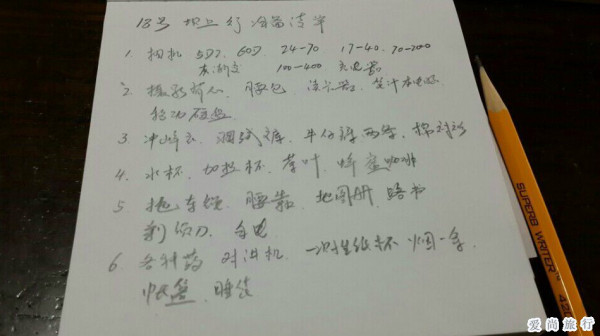 18号 坝上行 准备清单
1. 相机 5D2、60D、24-70 17-40、70-200
灰渐变 100-400 充电器
2. 摄影背心、腰包 读卡器、笔记本电脑
移动硬盘
3. 冲锋衣、裤、牛仔裤两条、棉衬衫
4. 水杯、切杯、茶叶、蜂蜜咖啡
5 拖车绳、腰靠、地图册、路书
剃须刀、手电
6. 各种药 对讲机、一次性纸杯 火烟一条、
睡袋
SUPERB WRITER
爱尚旅行